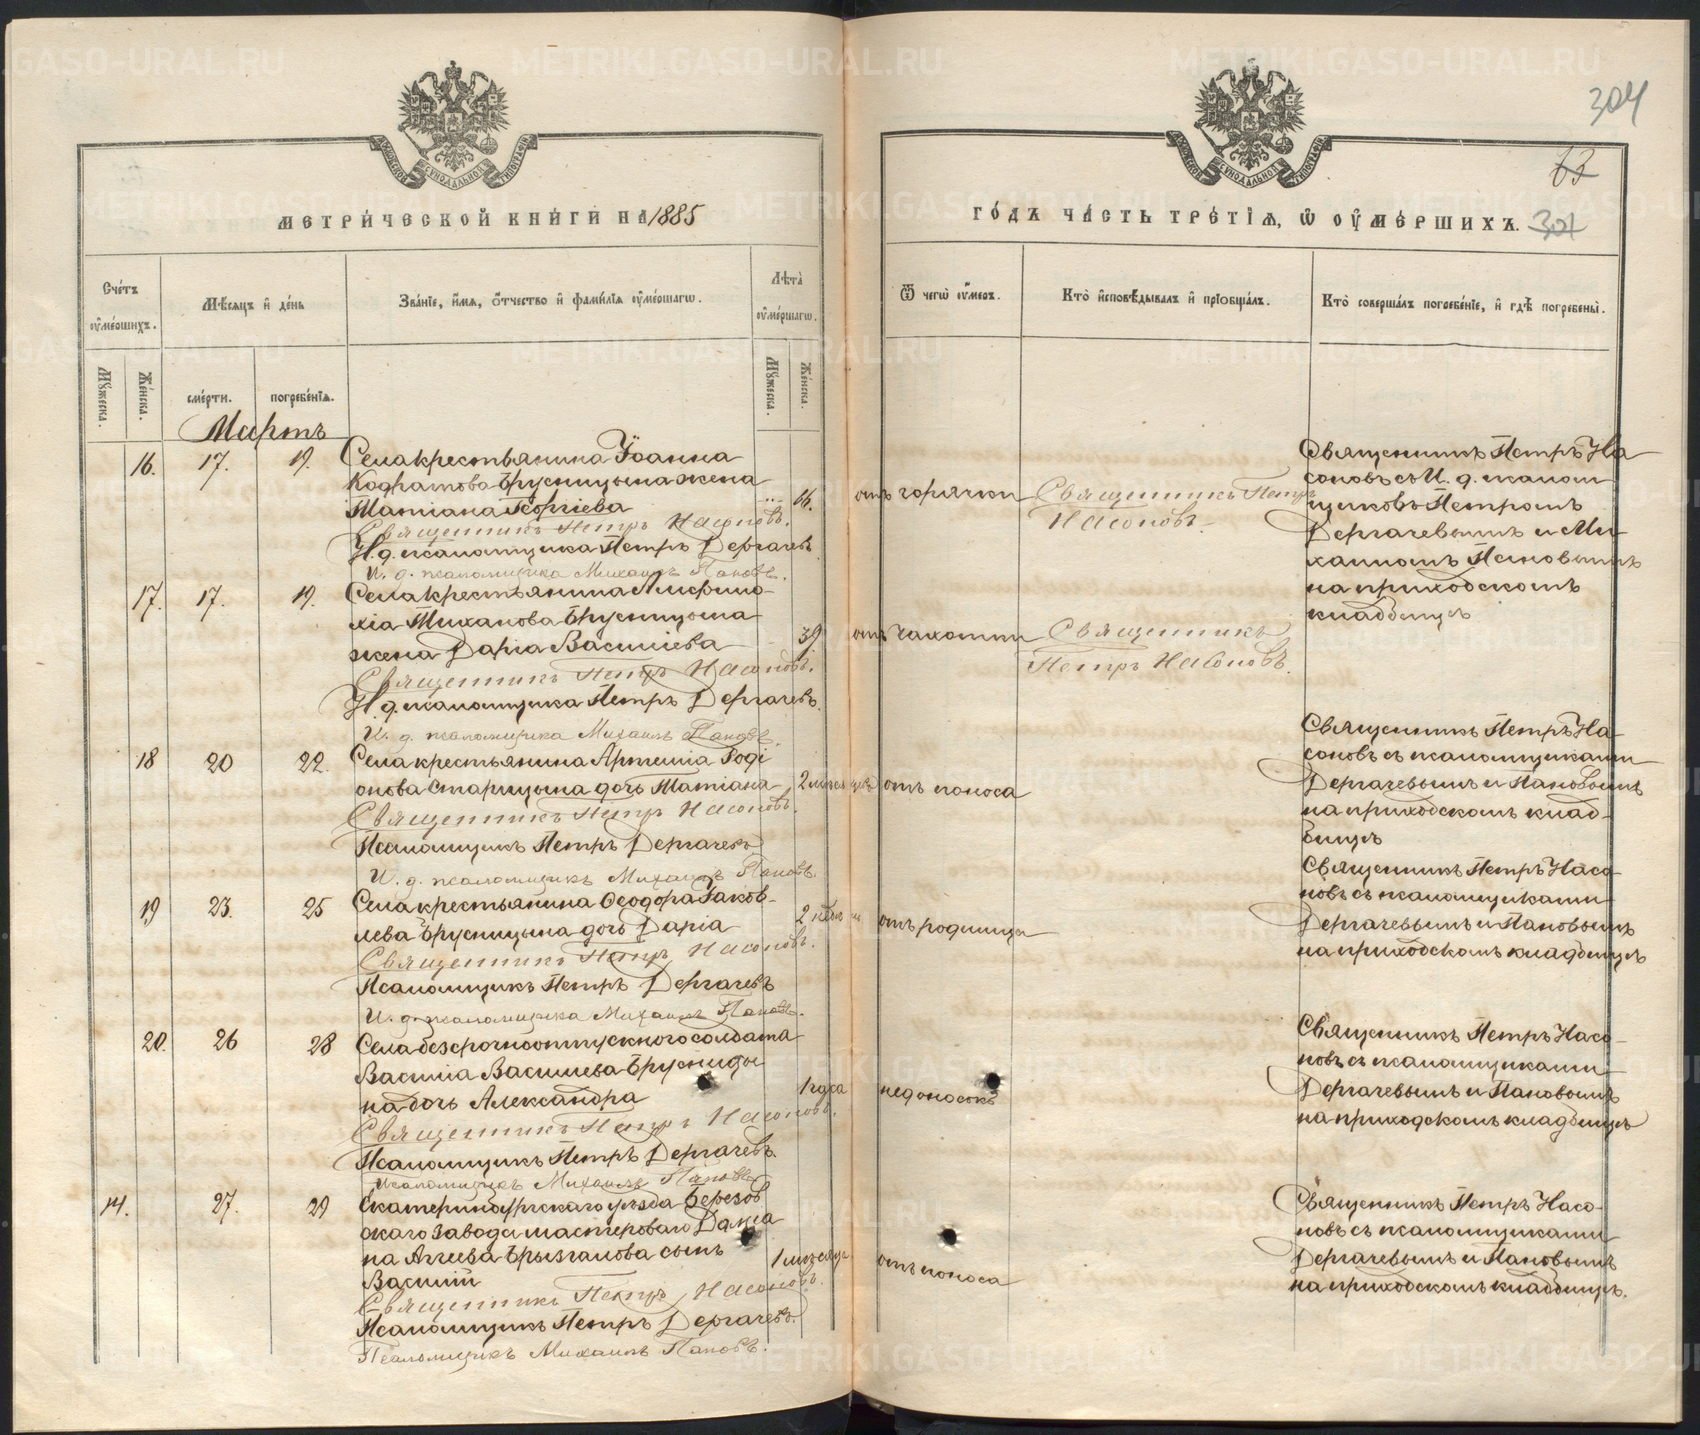 METRIKI.GASO-URAL.RU
304
63
МЕТРИ́ЧЕСКОЙ КНИ́ГИ НА 1885
ГО́ДЪ ЧА́СТЬ ТРЕ́ТІѦ, Ѡ ОУ҆МЕ́РШИХЪ. 301
Сче́тъ оу҆ме́ршихъ.
Мѣ́сѧцъ и҆ де́нь
Зва́нїе, и҆́мѧ, о҆́тчество и҆ фамилїѧ оу҆ме́ршагѡ.
Лѣ́та оу҆ме́ршагѡ.
Ѿ чегѡ̀ оу҆́меръ.
Кто̀ и҆сповѣ́дывалъ и҆ прїѡбща́лъ.
Кто̀ соверша́лъ погребе́нїе, и҆ гдѣ̀ погребены̀.
Мꙋ́жеска.
Же́нска.
сме́рти.
погребе́нїѧ.
Мꙋ́жеска.
Же́нска.
Мартъ
16. 17. 19.
Села крестьянина Іоанна
Кодратова Брусницына жена
Татіана Георгіева
Священникъ Петръ Насоновъ.
И. д. псаломщика Петръ Дергачевъ
И. д. псаломщика Михаилъ Пановъ.
отъ горячки
Священникъ Петръ
Насоновъ
Священникъ Петръ На
соновъ съ И. д. псалом
щиковъ Петромъ
Дергачевымъ и Ми
хаиломъ Пановымъ
на приходскомъ
кладбищѣ
17. 17. 19.
Села крестьянина
Брусницына
жена Дарія Василіева
39
Священникъ Петръ Насоновъ.
И. д. псаломщика Петръ Дергачевъ.
И. д. псаломщика Михаилъ Пановъ.
отъ чахотки
Священникъ
Петръ Насоновъ.
18 20 22.
Села крестьянина Артемія Роді
онова Старицына дочь Татіана
2 мѣсяцевъ
Священникъ Петръ Насоновъ.
Псаломщикъ Петръ Дергачевъ
И. д. псаломщикъ Михаилъ Пановъ.
отъ поноса
Священникъ Петръ На
соновъ съ псаломщиками
Дергачевымъ и Пановымъ
на приходскомъ клад
бищѣ
19 23. 25
Села крестьянина Ѳеодора Іаков
лева Брусницына дочь Дарія
Священникъ Петръ Насоновъ.
Псаломщикъ Петръ Дергачевъ
И. д. псаломщика Михаилъ Пановъ.
отъ родимца
Священникъ Петръ Насо
новъ съ псаломщиками
Дергачевымъ и Пановымъ
на приходскомъ кладбищѣ
20. 26 28
Села безсрочноотпускного солдата
Василія Василіева Брусницы
на дочь Александра
1 часа
Священникъ Петръ Насоновъ.
Псаломщикъ Петръ Дергачевъ
Псаломщикъ Михаилъ Пановъ
недоносокъ
Священникъ Петръ Насо
новъ съ псаломщиками
Дергачевымъ и Пановымъ
на приходскомъ кладбищѣ
14. 27. 29
Екатеринбургскаго уѣзда Березов
скаго завода мастероваго
на Аггеева Брызгалова сынъ
Василій
1 мѣсяца
Священникъ Петръ Насоновъ.
Псаломщикъ Петръ Дергачевъ.
Псаломщикъ Михаилъ Пановъ.
отъ поноса
Священникъ Петръ Насо
новъ съ псаломщиками
Дергачевымъ и Пановымъ
на приходскомъ кладбищѣ.